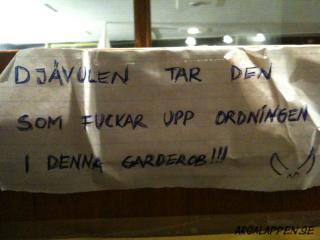 DJÄVULEN TAR DEN
SOM FUCKAR UPP ORDNINGEN
I DENNA GARDEROB!!!
ARGALAPPEN.SE